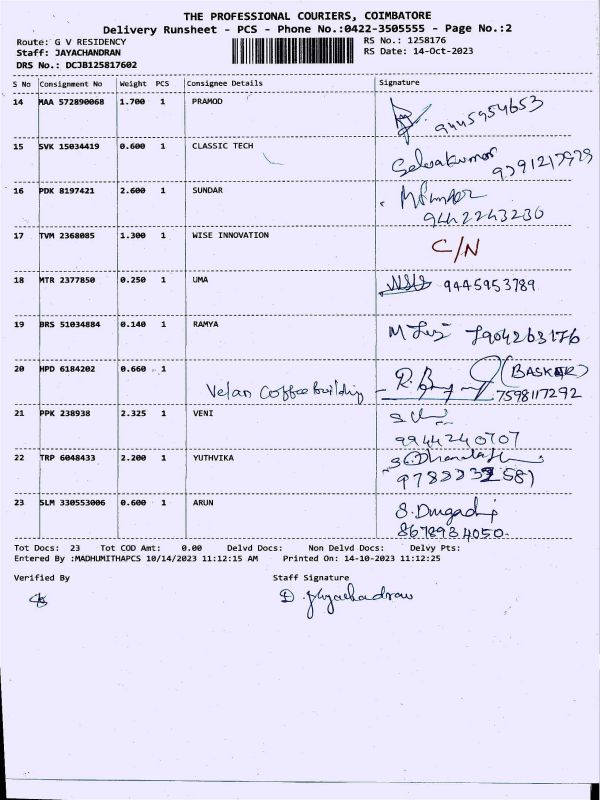 THE PROFESSIONAL COURIERS, COIMBATORE
Delivery Runsheet - PCS - Phone No.:0422-3505555 - Page No.:2
Route: G V RESIDENCY RS No.: 1258176
Staff: JAYACHANDRAN RS Date: 14-Oct-2023
DRS No.: DCJB125817602
S No Consignment No Weight PCS Consignee Details Signature
14 MAA 572890068 1.700 1 PRAMOD
9445954653
15 SVK 15034419 0.600 1 CLASSIC TECH Selvakumar
9791217929
16 PDK 8197421 2.600 1 SUNDAR
9442243230
17 TVM 2368085 1.300 1 WISE INNOVATION C/N
18 MTR 2377850 0.250 1 UMA 9445953789
19 BRS 51034884 0.140 1 RAMYA 7904263176
20 HPD 6184202 0.660 1 (BASKAR)
Velan Coffee building 7598117292
21 PPK 238938 2.325 1 VENI
9944240707
22 TRP 6048433 2.200 1 YUTHVIKA
23 SLM 330553006 0.600 1 ARUN
8678934050.
Tot Docs: 23 Tot COD Amt: 0.00 Delvd Docs: Non Delvd Docs: Delvy Pts:
Entered By :MADHUMITHAPCS 10/14/2023 11:12:15 AM Printed On: 14-10-2023 11:12:25
Verified By Staff Signature
D. Jayachandran